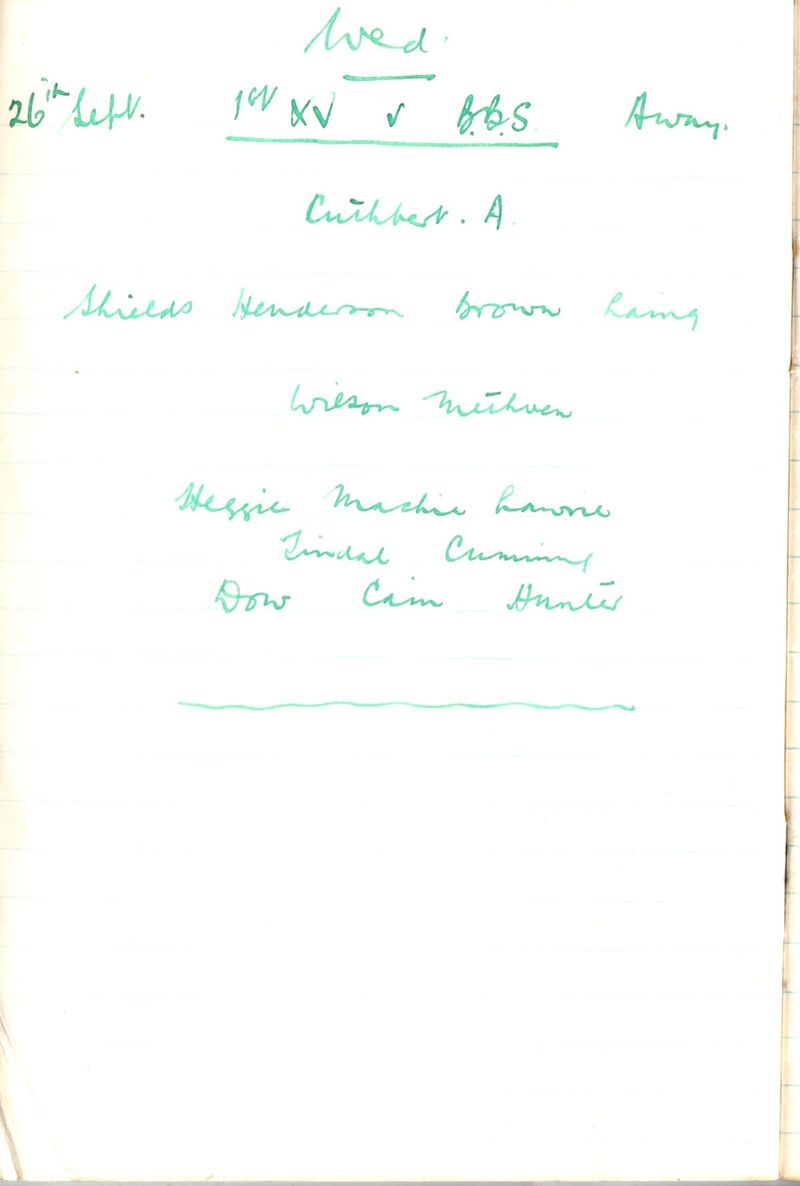 Wed.
26th Sept. 1st XV v B.B.S. Away.
Cuthbert. A.
Shields Henderson Brown Laing
Wilson Methven
Heggie Mackie Lawrie
Tindal Cumming
Dow Cain Hunter